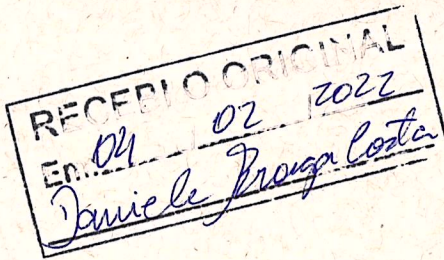 RECEBI O ORIGINAL
Em 04 02 2022
Daniele Braga Costa